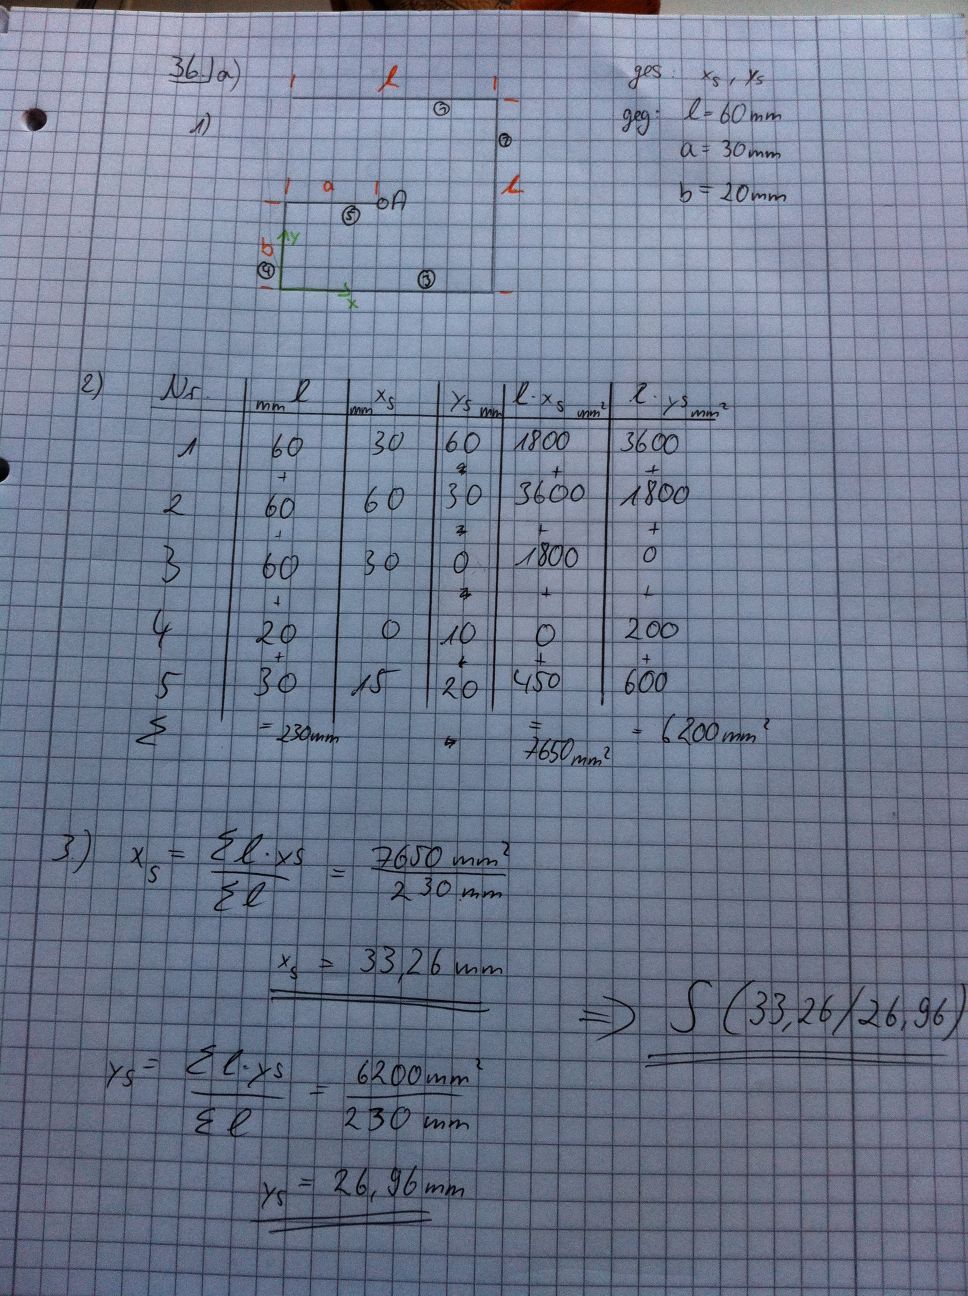 36.) a)
1)
l
ges: xs, ys
geg: l = 60 mm
a = 30 mm
b = 20 mm
①
②
l
a
A
⑤
b
y
④
③
x
2)
Nr. | l mm | xs mm | ys mm | l · xs mm² | l · ys mm²
1 | 60 | 30 | 60 | 1800 | 3600
+ + +
2 | 60 | 60 | 30 | 3600 | 1800
+ + +
3 | 60 | 30 | 0 | 1800 | 0
+ + +
4 | 20 | 0 | 10 | 0 | 200
+ + + +
5 | 30 | 15 | 20 | 450 | 600
Σ = 230mm = 7650mm² = 6200mm²
3.) xs = Σl·xs / Σl = 7650 mm² / 230 mm
xs = 33,26 mm
=> S (33,26/26,96)
ys = Σl·ys / Σl = 6200mm² / 230 mm
ys = 26,96mm